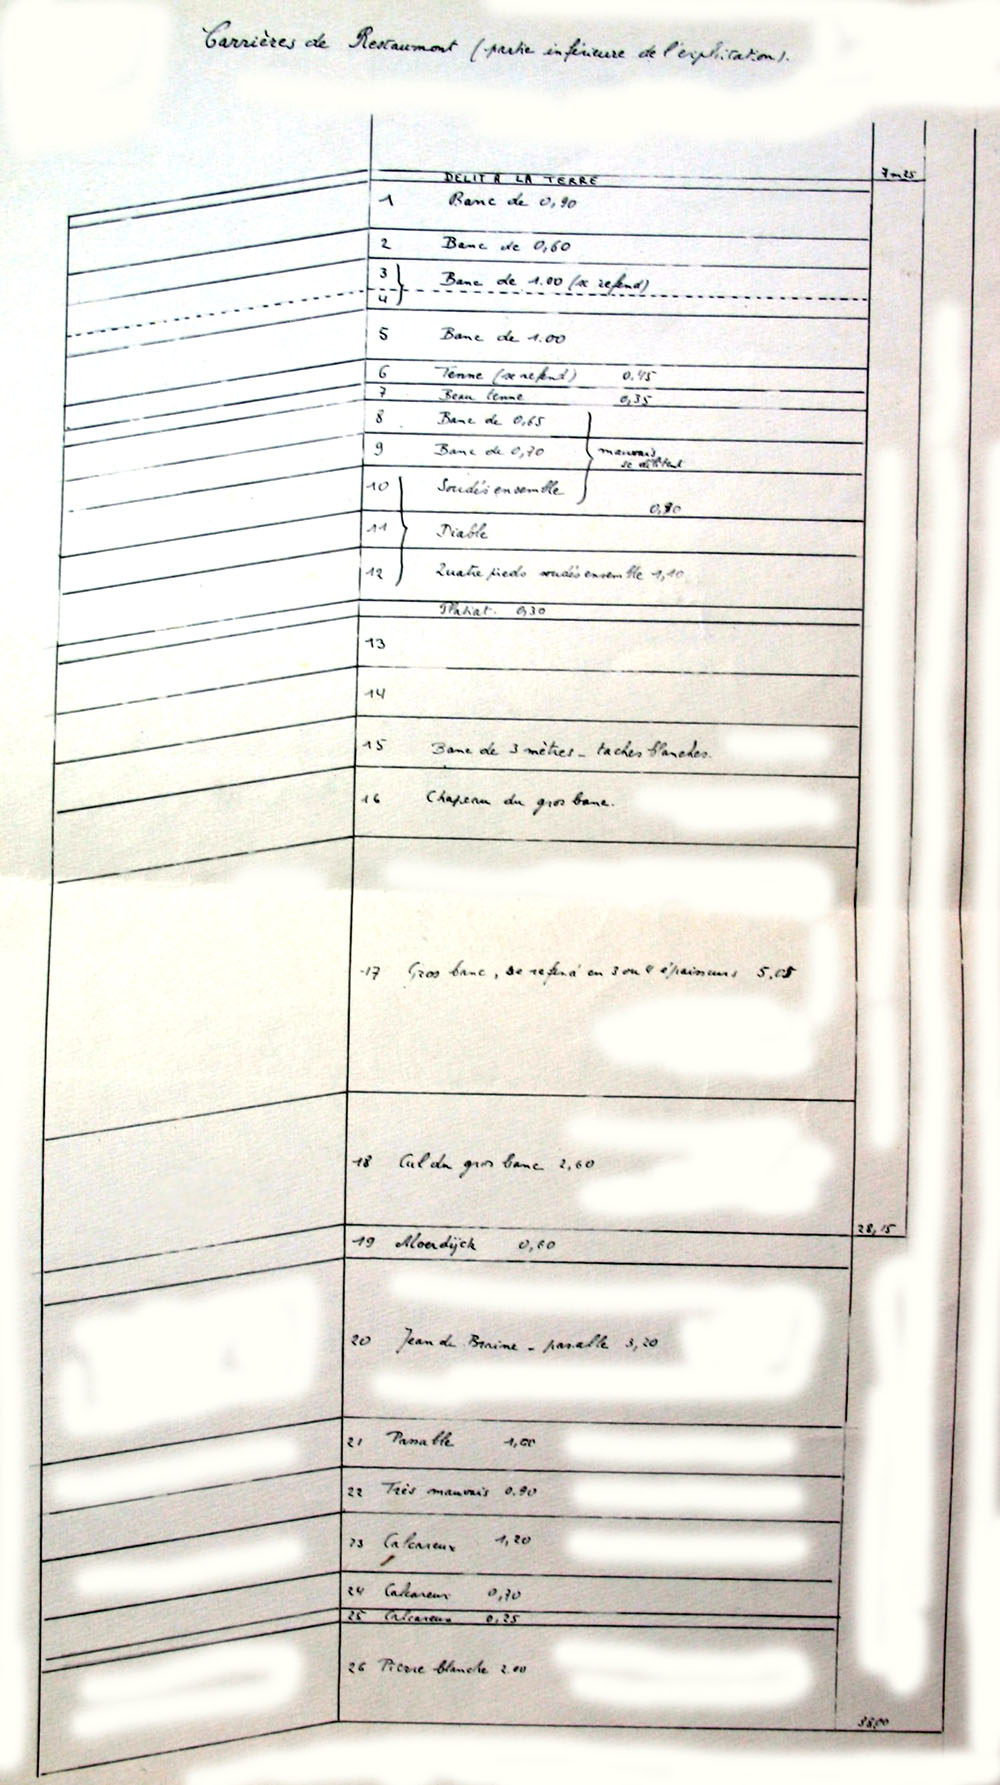 Carrières de Restaumont (partie inférieure de l'exploitation).
DELIT A LA TERRE 7m25
1 Banc de 0,90
2 Banc de 0,60
3
4 Banc de 1.00 (se refend)
5 Banc de 1.00
6 Tenne (se refend) 0,45
7 Beau tenne 0,35
8 Banc de 0,65
9 Banc de 0,70 mauvais
se délitent
10 Soudés ensemble
0,80
11 Diable
12 Quatre pieds soudés ensemble 1,10
0,30
13
14
15 Banc de 3 mètres - taches blanches.
16 Chapeau du gros banc.
17 Gros banc, se refend en 3 ou 4 épaisseurs 5,05
18 Cul du gros banc 2,60
28,15
19 Moerdijck 0,60
20 Jean de Braine - passable 3,20
21 Passable
22 Très mauvais 0.90
23 Calcareux 1,20
24 Calcareux 0,70
25 Calcareux 0,25
26 Pierre blanche 2.00
38,00